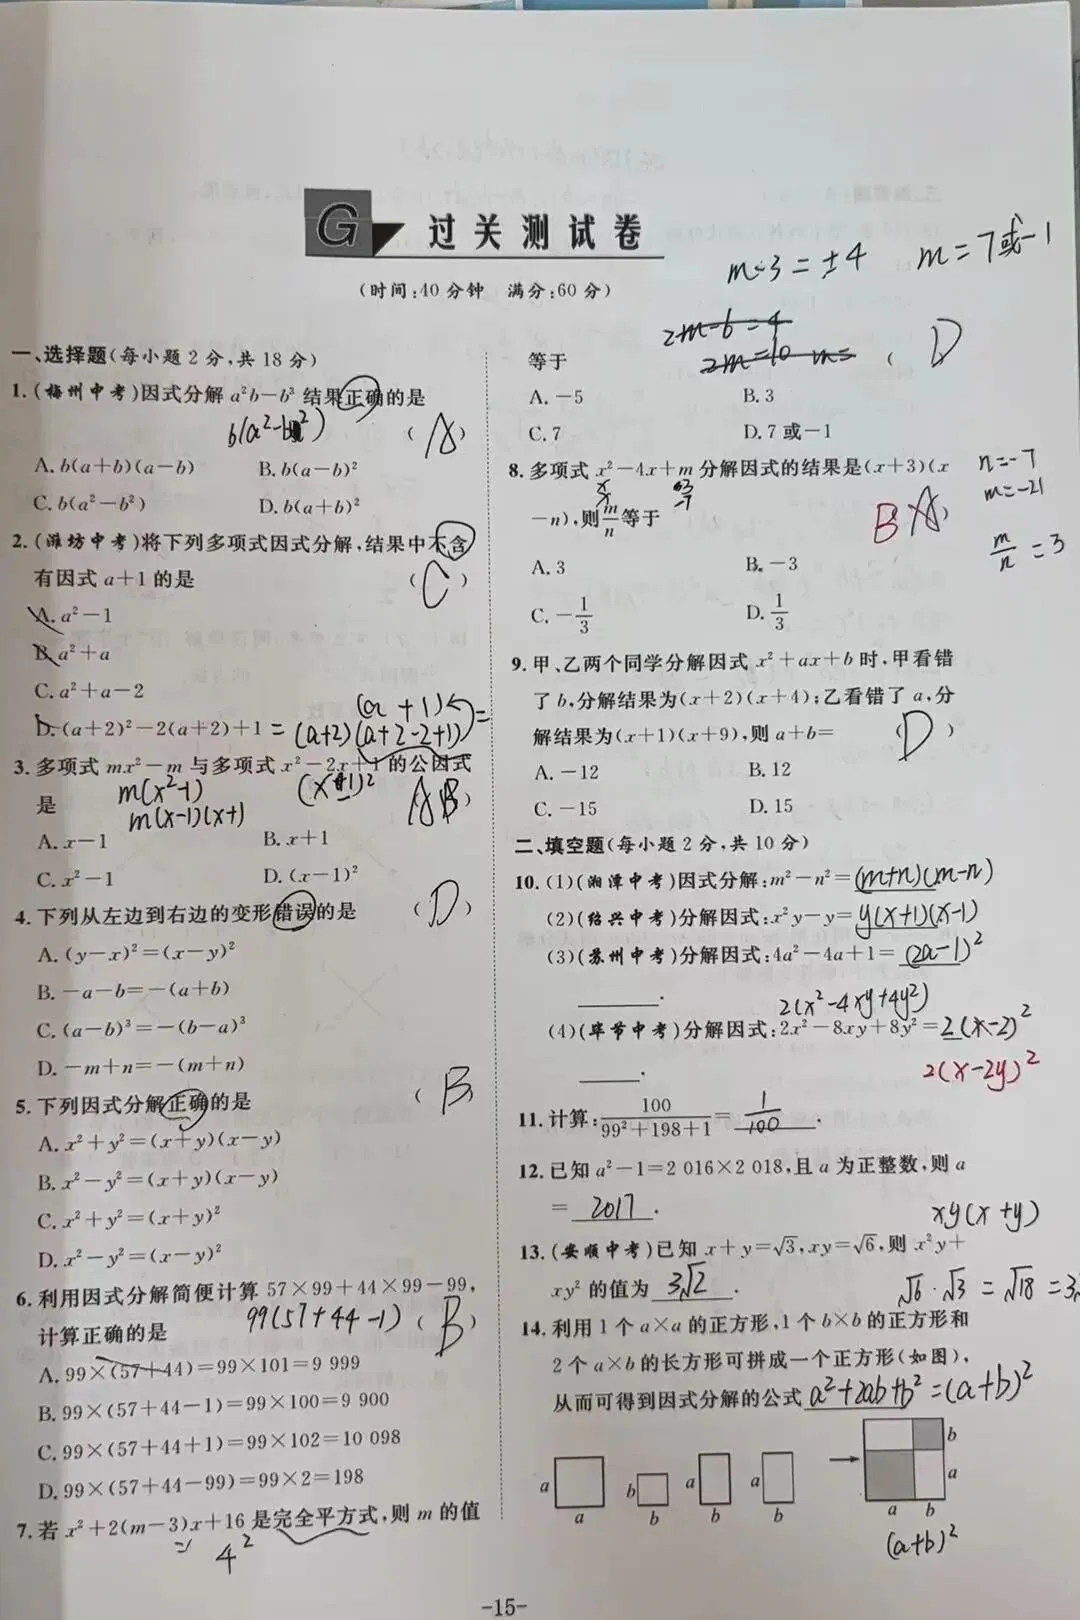 G 过关测试卷
(时间:40分钟 满分:60分)
一、选择题(每小题2分,共18分)
1.(梅州中考)因式分解 a²b-b³ 结果正确的是
b(a²-b²)
( A )
A. b(a+b)(a-b) B. b(a-b)²
C. b(a²-b²) D. b(a+b)²
2.(潍坊中考)将下列多项式因式分解,结果中不含
有因式 a+1 的是 ( C )
A. a²-1
B. a²+a
C. a²+a-2
D. (a+2)²-2(a+2)+1 = (a+2)(a+2-2+1) =
(a+1)
3.多项式 mx²-m 与多项式 x²-2x+1 的公因式
m(x²-1) (x-1)²
是 m(x-1)(x+1) A B )
A. x-1 B. x+1
C. x²-1 D. (x-1)²
4.下列从左边到右边的变形错误的是 ( D )
A. (y-x)²=(x-y)²
B. -a-b=-(a+b)
C. (a-b)³=-(b-a)³
D. -m+n=-(m+n)
5.下列因式分解正确的是 ( B )
A. x²+y²=(x+y)(x-y)
B. x²-y²=(x+y)(x-y)
C. x²+y²=(x+y)²
D. x²-y²=(x-y)²
6.利用因式分解简便计算 57×99+44×99-99,
99(57+44-1)
计算正确的是 ( B )
A. 99×(57+44)=99×101=9 999
B. 99×(57+44-1)=99×100=9 900
C. 99×(57+44+1)=99×102=10 098
D. 99×(57+44-99)=99×2=198
7.若 x²+2(m-3)x+16 是完全平方式,则 m 的值
4²
m-3=±4 m=7或-1
2m-6=4
2m=10 m=
等于 ( D
A. -5 B. 3
C. 7 D. 7或-1
8.多项式 x²-4x+m 分解因式的结果是(x+3)(x
-n),则 m/n 等于 B A )
x 3
x -7
n=-7
m=-21
m/n=3
A. 3 B. -3
C. -1/3 D. 1/3
9.甲、乙两个同学分解因式 x²+ax+b 时,甲看错
了 b,分解结果为(x+2)(x+4);乙看错了 a,分
解结果为(x+1)(x+9),则 a+b= ( D )
A. -12 B. 12
C. -15 D. 15
二、填空题(每小题2分,共10分)
10.(1)(湘潭中考)因式分解:m²-n²=(m+n)(m-n)
(2)(绍兴中考)分解因式:x²y-y=y(x+1)(x-1)
(3)(苏州中考)分解因式:4a²-4a+1=(2a-1)²
.
2(x²-4xy+4y²)
(4)(毕节中考)分解因式:2x²-8xy+8y²=2(x-2)²
.
2(x-2y)²
11.计算:100/(99²+198+1)=1/100.
12.已知 a²-1=2 016×2 018,且 a 为正整数,则 a
=2017.
xy(x+y)
13.(安顺中考)已知 x+y=√3,xy=√6,则 x²y+
xy² 的值为 3√2 .
√6·√3=√18=3
14.利用1个 a×a 的正方形,1个 b×b 的正方形和
2个 a×b 的长方形可拼成一个正方形(如图),
从而可得到因式分解的公式 a²+2ab+b²=(a+b)²
a a b b a b a b a b b a
(a+b)²
-15-